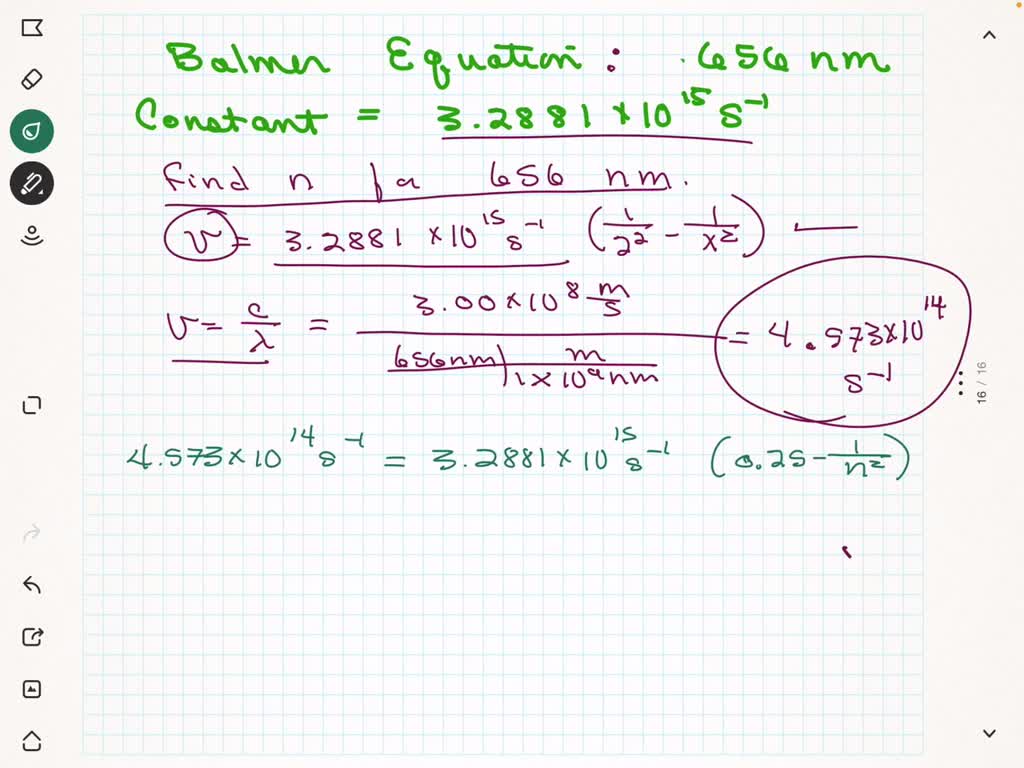 Balmer Equation: 656 nm
Constant = 3.2881 × 10¹⁵ s⁻¹
find n for 656 nm.
ν = 3.2881 × 10¹⁵ s⁻¹ (1/2² - 1/x²)
ν = c/λ = 3.00 × 10⁸ m/s / (656 nm) | m / 1 × 10⁹ nm = 4.573 × 10¹⁴ s⁻¹
4.573 × 10¹⁴ s⁻¹ = 3.2881 × 10¹⁵ s⁻¹ (0.25 - 1/n²)
16 / 16